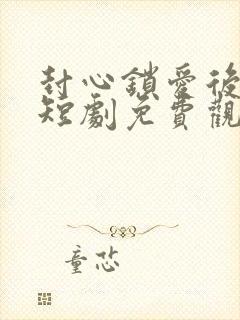 封心鎖愛後
短劇免費觀
童恣